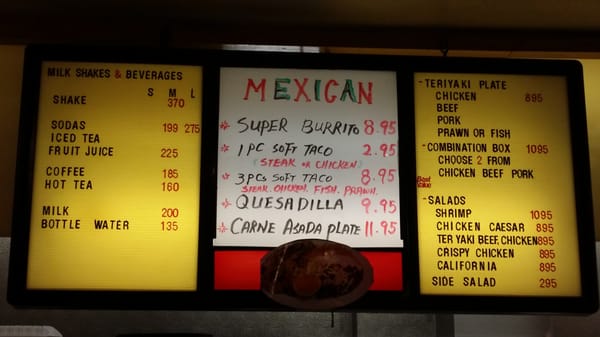 MILK SHAKES & BEVERAGES
S M L
SHAKE 370
SODAS 199 275
ICED TEA
FRUIT JUICE 225
COFFEE 185
HOT TEA 160
MILK 200
BOTTLE WATER 135
MEXICAN
* SUPER BURRITO 8.95
* 1 PC SOFT TACO 2.95
(STEAK OR CHICKEN)
* 3 PCS SOFT TACO 8.95
STEAK. CHICKEN. FISH. PRAWN.
* QUESADILLA 9.95
* CARNE ASADA PLATE 11.95
- TERIYAKI PLATE
CHICKEN 895
BEEF
PORK
PRAWN OR FISH
- COMBINATION BOX 1095
CHOOSE 2 FROM
CHICKEN BEEF PORK
Best Value
- SALADS
SHRIMP 1095
CHICKEN CAESAR 895
TERIYAKI BEEF, CHICKEN 895
CRISPY CHICKEN 895
CALIFORNIA 895
SIDE SALAD 295